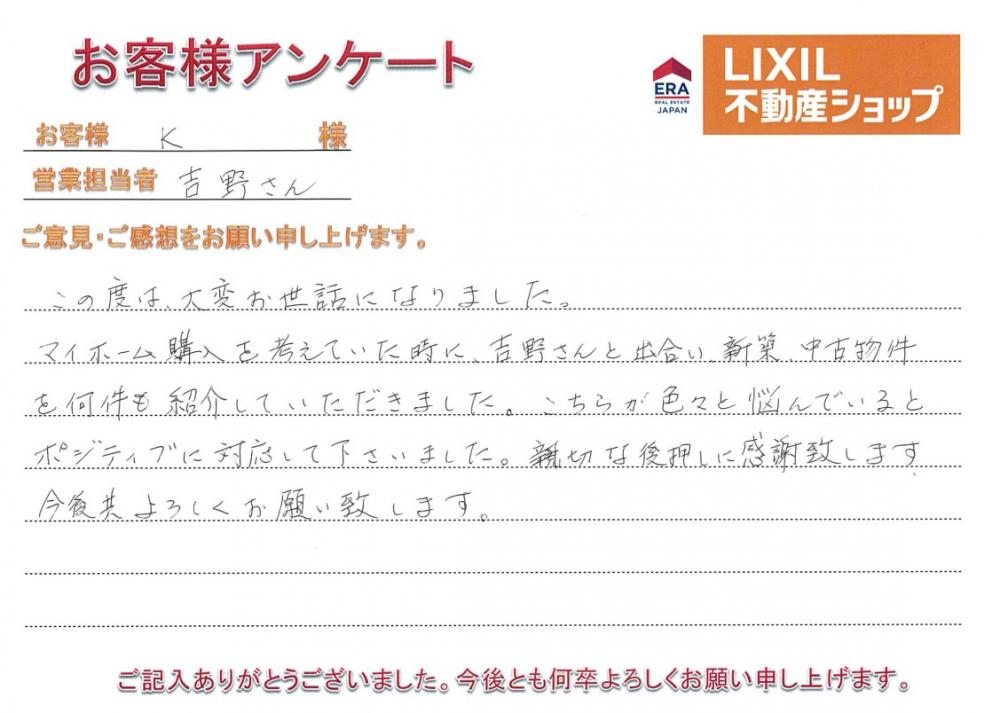 お客様アンケート
ERA
REAL ESTATE
JAPAN
LIXIL
不動産ショップ
お客様 K 様
営業担当者 吉野さん
ご意見・ご感想をお願い申し上げます。
この度は、大変お世話になりました。
マイホーム購入を考えていた時に、吉野さんと出合い新築、中古物件
を何件も紹介していただきました。こちらが色々と悩んでいると
ポジティブに対応して下さいました。親切な後押しに感謝致します.
今後共よろしくお願い致します。
ご記入ありがとうございました。今後とも何卒よろしくお願い申し上げます。